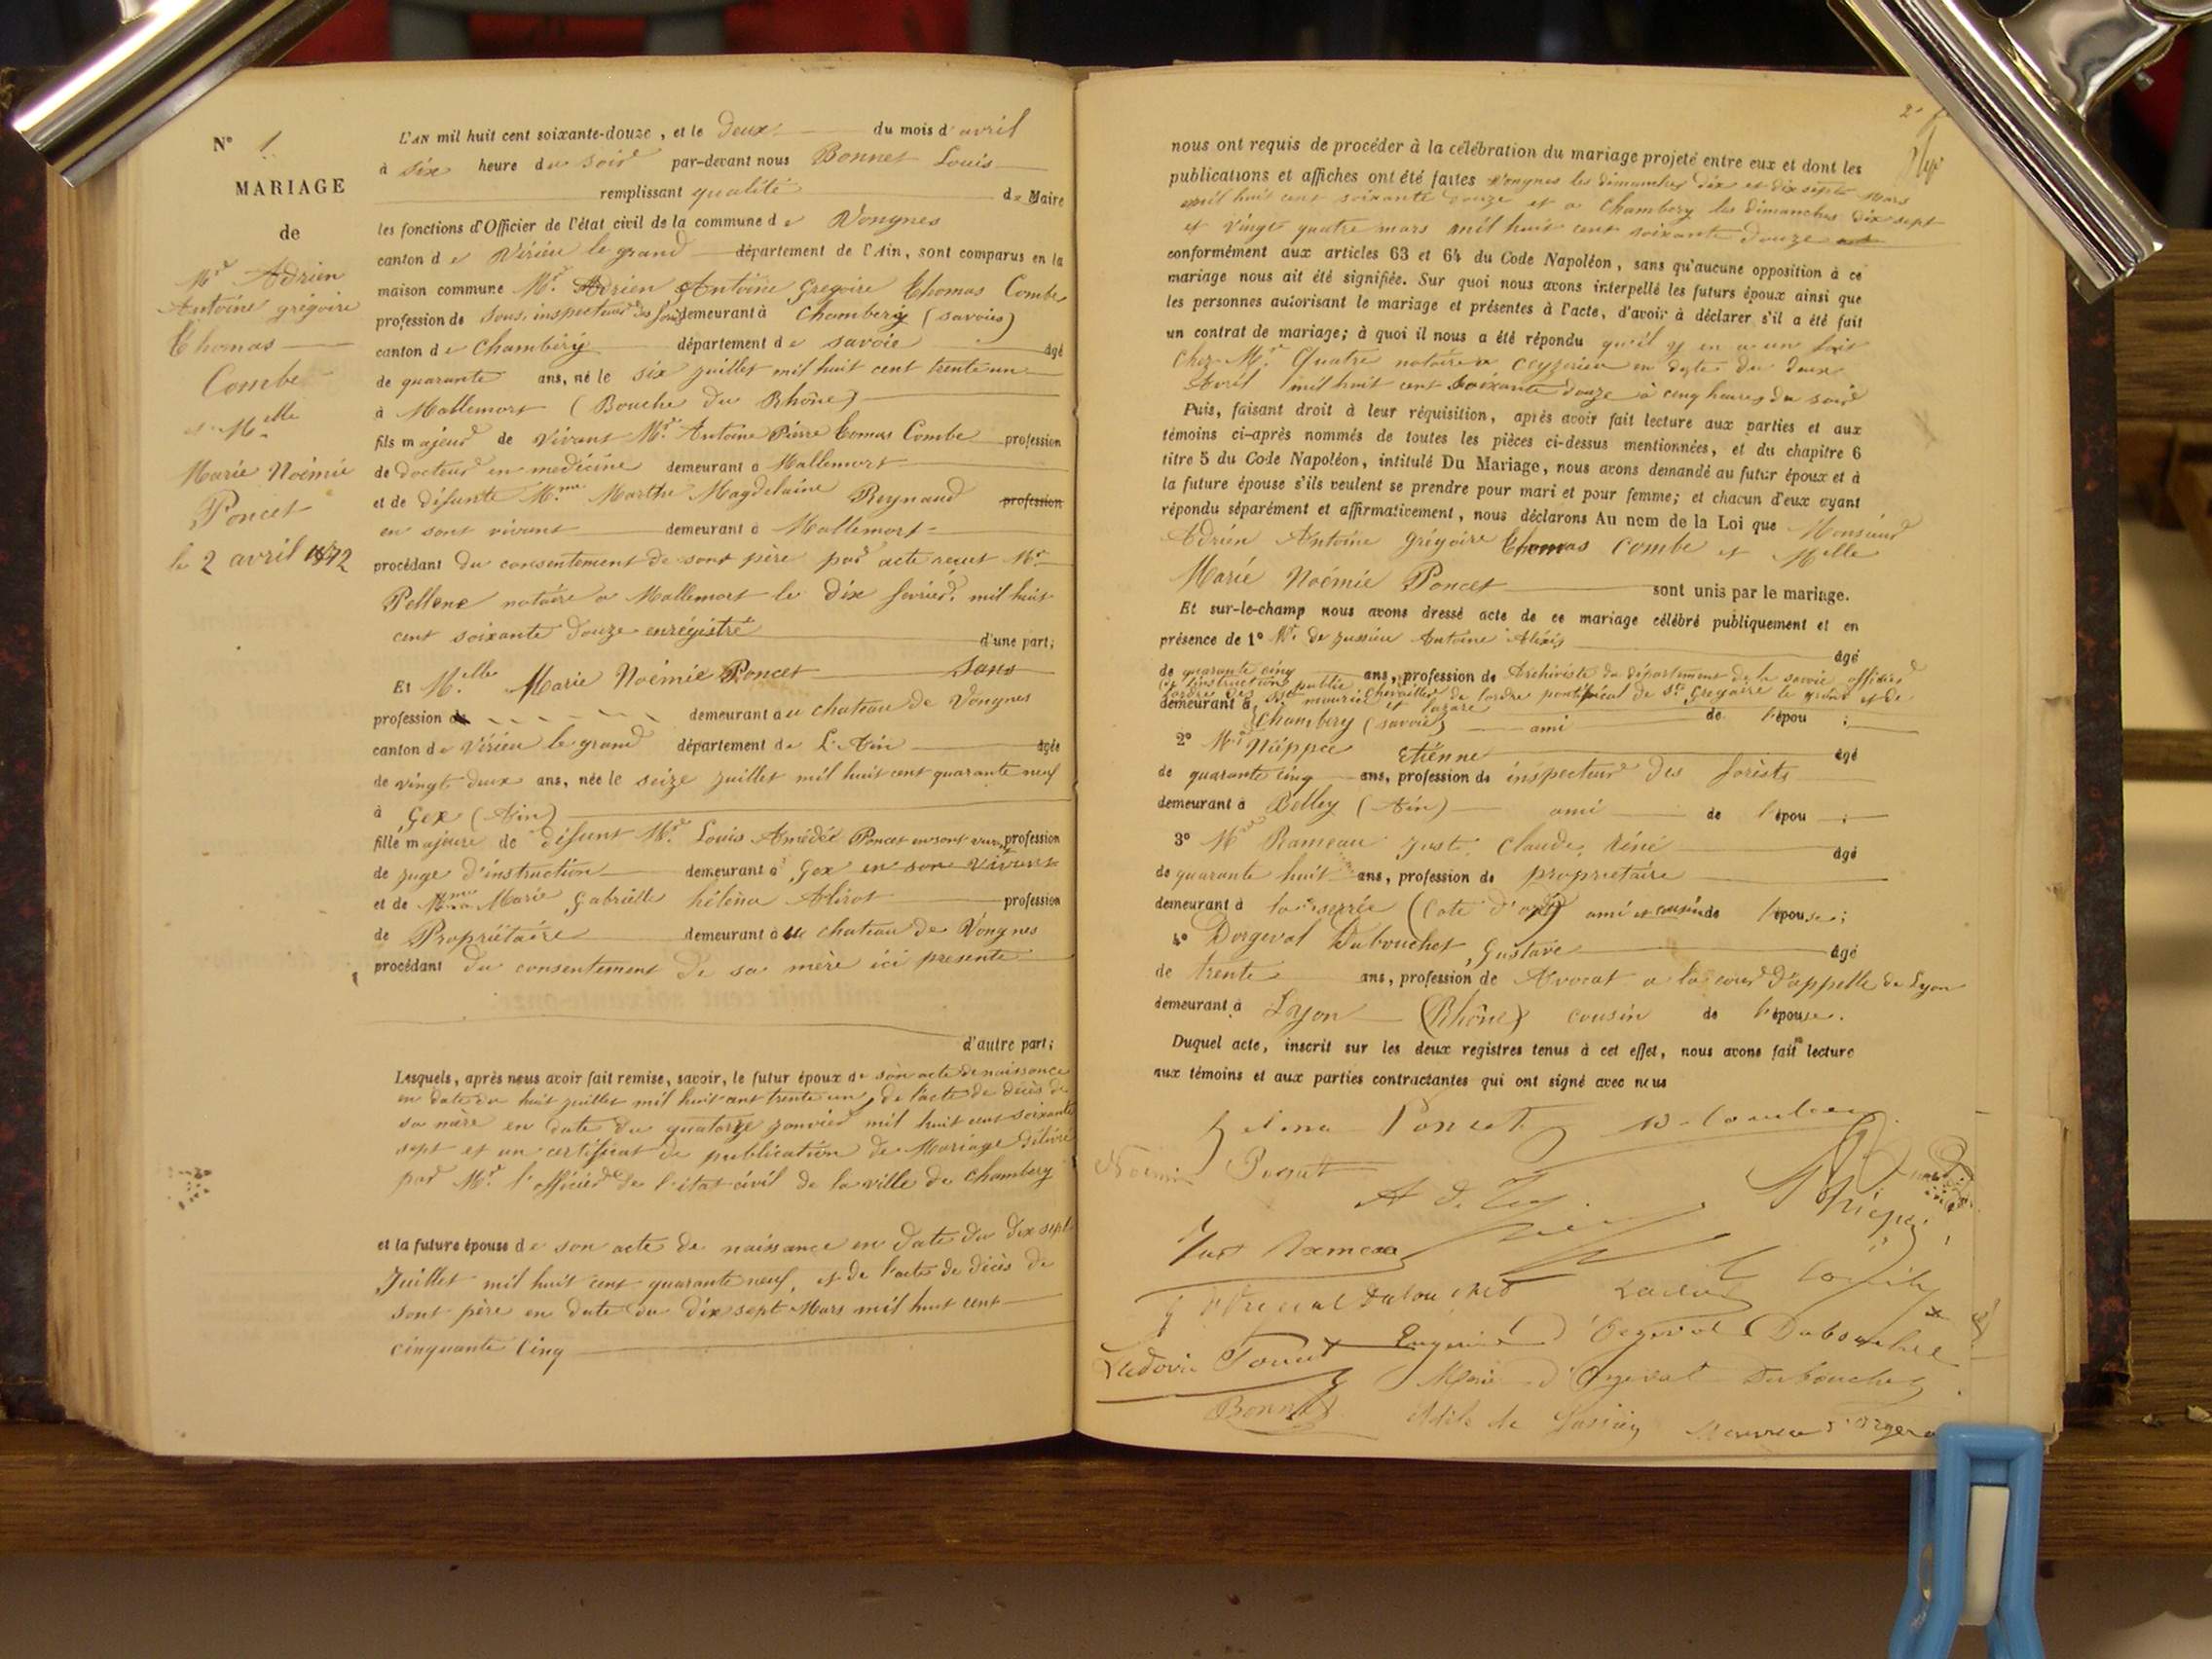 N° 1
MARIAGE
de
Mr Adrien
Antoine grégoire
Thomas
Combe
et Melle
Marie Noémie
Poncet
le 2 avril 1872
L'AN mil huit cent soixante-douze, et le deux du mois d'avril
à six heure du soir par-devant nous Bonnet Louis
remplissant qualité de Maire
les fonctions d'Officier de l'état civil de la commune de Vongnes
canton de Virieu le grand département de l'Ain, sont comparus en la
maison commune Mr. Adrien Antoine Gregoire Thomas Combe
profession de Sous inspecteur des forêts demeurant à Chambery (savoie)
canton de Chambéry département de savoie âgé
de quarante ans, né le six juillet mil huit cent trente un
à Mallemort (Bouche du Rhône)
fils majeur de vivant Mr. Antoine Pierre Tomas Combe profession
de docteur en medécine demeurant à Mallemort
et de défunte Mme Marthe Magdelaine Reynaud profession
en sont vivant demeurant à Mallemort
procédant du consentement de sont père par acte recut Mr
Pellene notaire a Mallemort le dix février mil huit
cent soixante douze enrégistré d'une part;
Et Melle Marie Noémie Poncet Sans
profession de demeurant au chateau de Vongnes
canton de Virieu le grand département de L'Ain âgée
de vingt deux ans, née le seize juillet mil huit cent quarante neuf
à Gex (Ain)
fille majeure de défunt Mr. Louis Amédée Poncet en sont vivant profession
de juge d'instruction demeurant à Gex en son vivant
et de Mme Marie Gabrielle héléna profession
de Propriétaire demeurant au chateau de Vongnes
procédant du consentement de sa mère ici presente
d'autre part;
Lesquels, après nous avoir fait remise, savoir, le futur époux de son acte de naissance
en date du huit juillet mil huit cent trente un, de l'acte de décès de
sa mère en date du quatorze janvier mil huit cent soixante
sept et un certificat de publication de Mariage délivré
par Mr. l'officier de l'état civil de la ville de Chambery
et la future épouse de son acte de naissance en date du dix sept
Juillet mil huit cent quarante neuf, et de l'acte de décès de
sont père en date du dix sept Mars mil huit cent
cinquante cinq
nous ont requis de procéder à la célébration du mariage projeté entre eux et dont les
publications et affiches ont été faites Vongnes les dimanches dix et dix septe Mars
mil huit cent soixante douze et a Chambery les dimanches dix sept
et vingt quatre mars mil huit cent soixante douze
conformément aux articles 63 et 64 du Code Napoléon, sans qu'aucune opposition à ce
mariage nous ait été signifiée. Sur quoi nous avons interpellé les futurs époux ainsi que
les personnes autorisant le mariage et présentes à l'acte, d'avoir à déclarer s'il a été fait
un contrat de mariage; à quoi il nous a été répondu qu'il y en a un fait
Chez Mr. Quatre notaire a Ceyzerieu en date du deux
Avril mil huit cent soixante douze à cinq heures du soir
Puis, faisant droit à leur réquisition, après avoir fait lecture aux parties et aux
témoins ci-après nommés de toutes les pièces ci-dessus mentionnées, et du chapitre 6
titre 5 du Code Napoléon, intitulé Du Mariage, nous avons demandé au futur époux et à
la future épouse s'ils veulent se prendre pour mari et pour femme; et chacun d'eux ayant
répondu séparément et affirmativement, nous déclarons Au nom de la Loi que Monsieur
Adrien Antoine Grégoire Thomas Combe et Melle
Marie Noémie Poncet sont unis par le mariage.
Et sur-le-champ nous avons dressé acte de ce mariage célébré publiquement et en
présence de 1° Mr. de Jussieu Antoine Alexis âgé
de quarante cinq ans, profession de Archiviste du département de la savoie officier
de l'instruction public Chevallier de l'ordre pontifical de St Gregoire le grand et de
l'ordre des Sts maurice et lazare
demeurant à Chambery (savoie) ami de l'épou ;
2° Mr Niéppce Etiénne âgé
de quarante cinq ans, profession de inspecteur des forêts
demeurant à Belley (Ain) ami de l'épou ;
3° Mr Rameau Just Claude Réné âgé
de quarante huit ans, profession de propriétaire
demeurant à (Cote d'or) ami et cousin de l'épouse;
4° Dorgeval Dubouchet, Gustave âgé
de trente ans, profession de Avocat a la cour d'appelle de Lyon
demeurant à Lyon (Rhône) cousin de l'épouse.
Duquel acte, inscrit sur les deux registres tenus à cet effet, nous avons fait lecture
aux témoins et aux parties contractantes qui ont signé avec nous
Helena Poncet
Noémi Poncet
Just Rameau
G d'Orgeval Dubouchet
Ludovic Poncet Eugénie d'Orgeval Dubouchet
Marie d'Orgeval Dubouchet
Bonnet Adèle de Jussieu